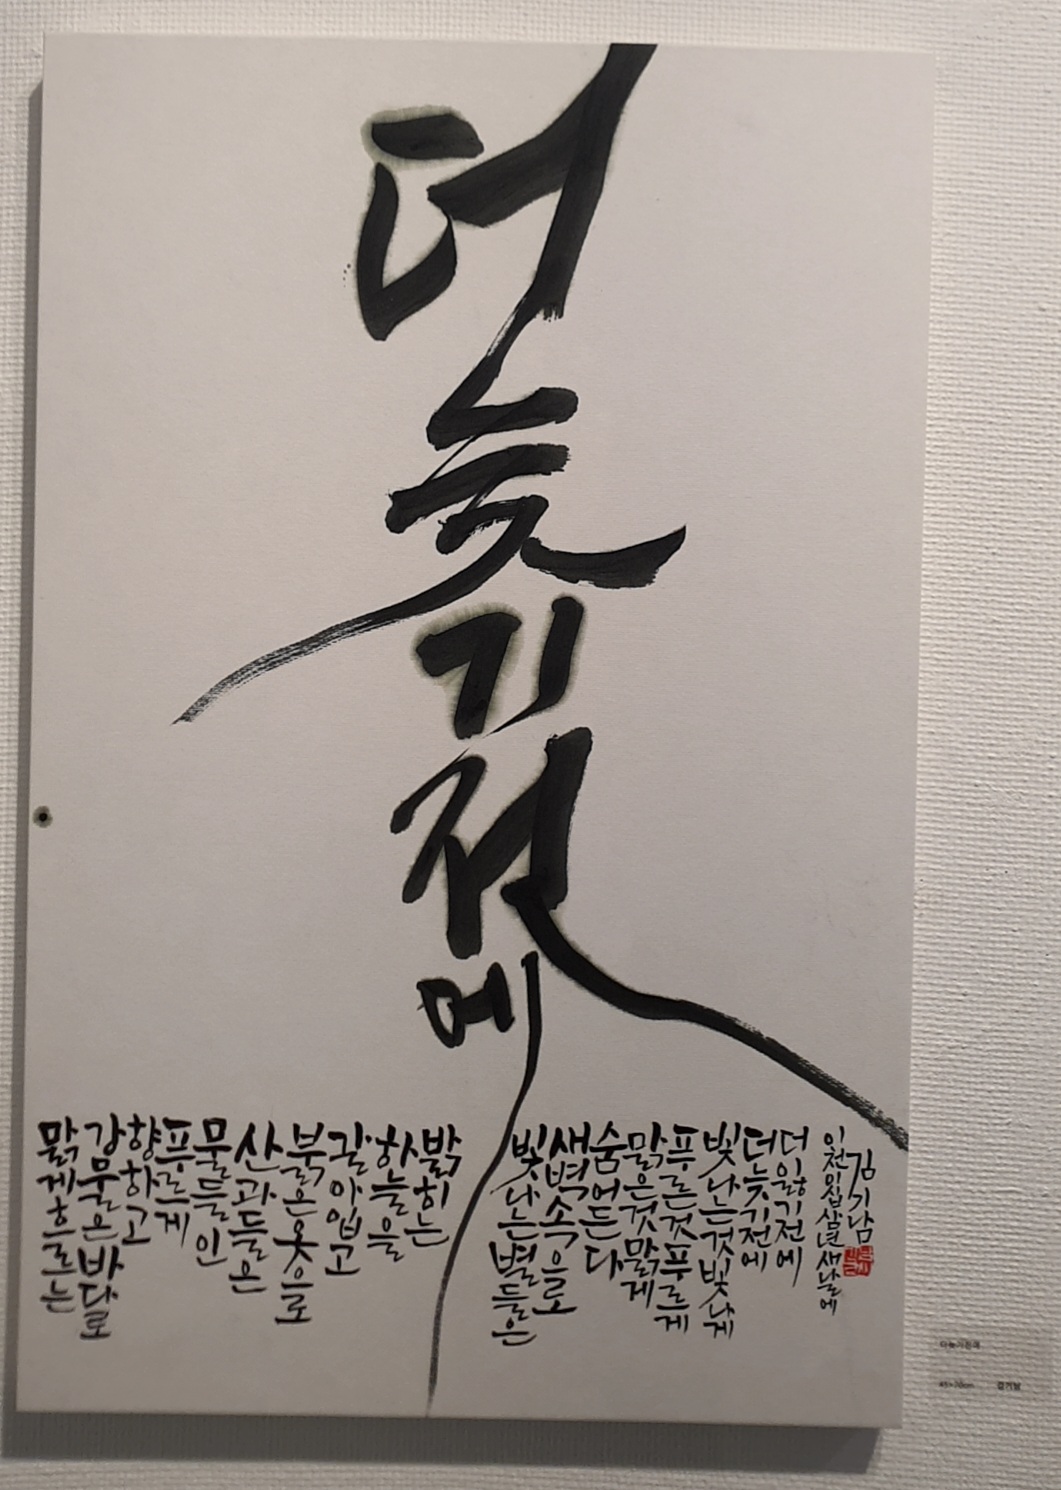 더늦기전에
맑게흐르는
강물은바다로
향하고
푸르게
물들인
산과들은
붉은옷으로
갈아입고
하늘을
밝히는
빛나는별들은
새벽속으로
숨어든다
맑은것맑게
푸른것푸르게
빛나는것빛나게
더늦기전에
더잃기전에
이천이십삼년새날에
김기남
더늦기전에
김기남